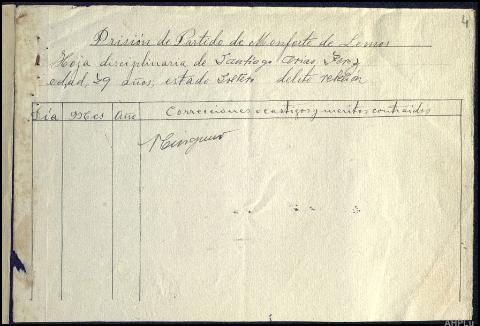 4
Prisión de Partido de Monforte de Lemos
Hoja disciplinaria de Santiago Arias
edad, 29 años, estado Soltero delito rebelión
Día Mes Año Correcciones o castigos y meritos contraidos
Ninguno
AHPLu